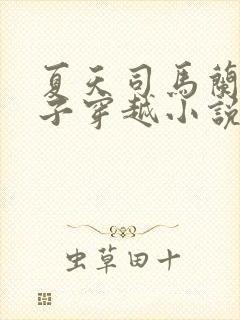 夏天司馬蘭
子穿越小說
虫草田十